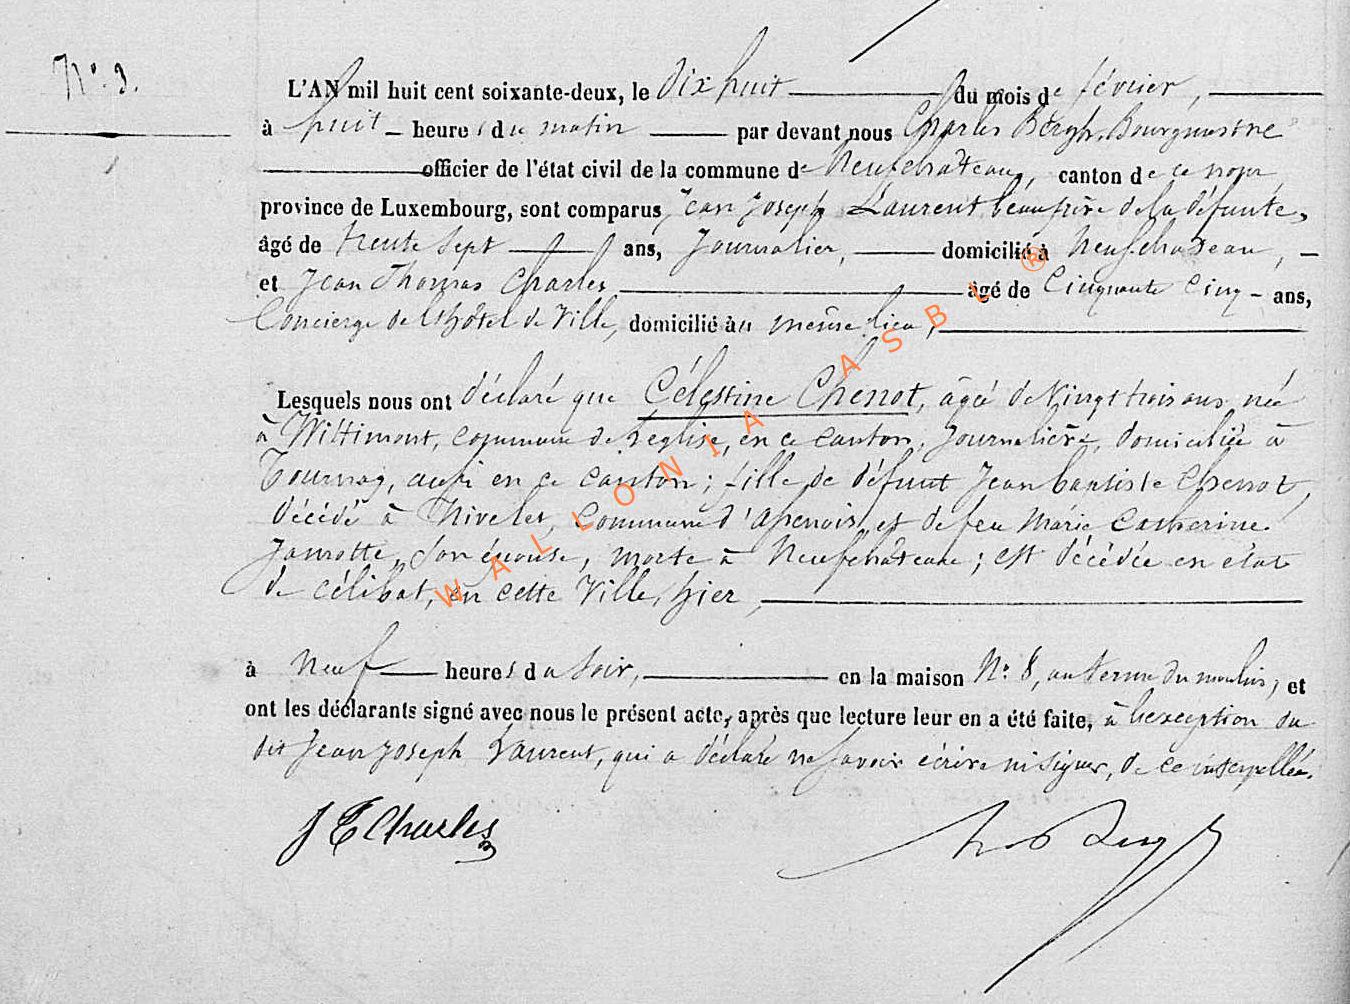 N° 3.
L'AN mil huit cent soixante-deux, le dix huit du mois de février,
à huit heures du matin par devant nous Charles Bergh, Bourgmestre
officier de l'état civil de la commune de Neufchâteau, canton de ce nom,
province de Luxembourg, sont comparus Jean Joseph Laurent beau frère de la défunte,
âgé de trente sept ans, Journalier, domicilié à Neufchâteau,
et Jean Thomas Charles âgé de Cinquante Cinq ans,
Concierge de l'hôtel de Ville, domicilié au même lieu,
Lesquels nous ont déclaré que Célestine Chenot, âgée de vingt trois ans, née
à Wittimont, commune de Léglise, en ce canton, Journalière, domiciliée à
Tournay, aussi en ce canton; fille de défunt Jean baptiste Chenot,
décédé à Nivelet, Commune d'assenois, et de feu Marie Catherine
Jamotte, son épouse, morte à Neufchâteau; est décédée en état
de célibat, en cette Ville, hier,
à neuf heures du soir, en la maison N° 8, au terme du moulin, et
ont les déclarants signé avec nous le présent acte, après que lecture leur en a été faite, à l'exception du
dit Jean Joseph Laurent, qui a déclaré ne savoir écrire ni signer, de ce interpellé.
J T Charles
WALLONIA ASBL ®